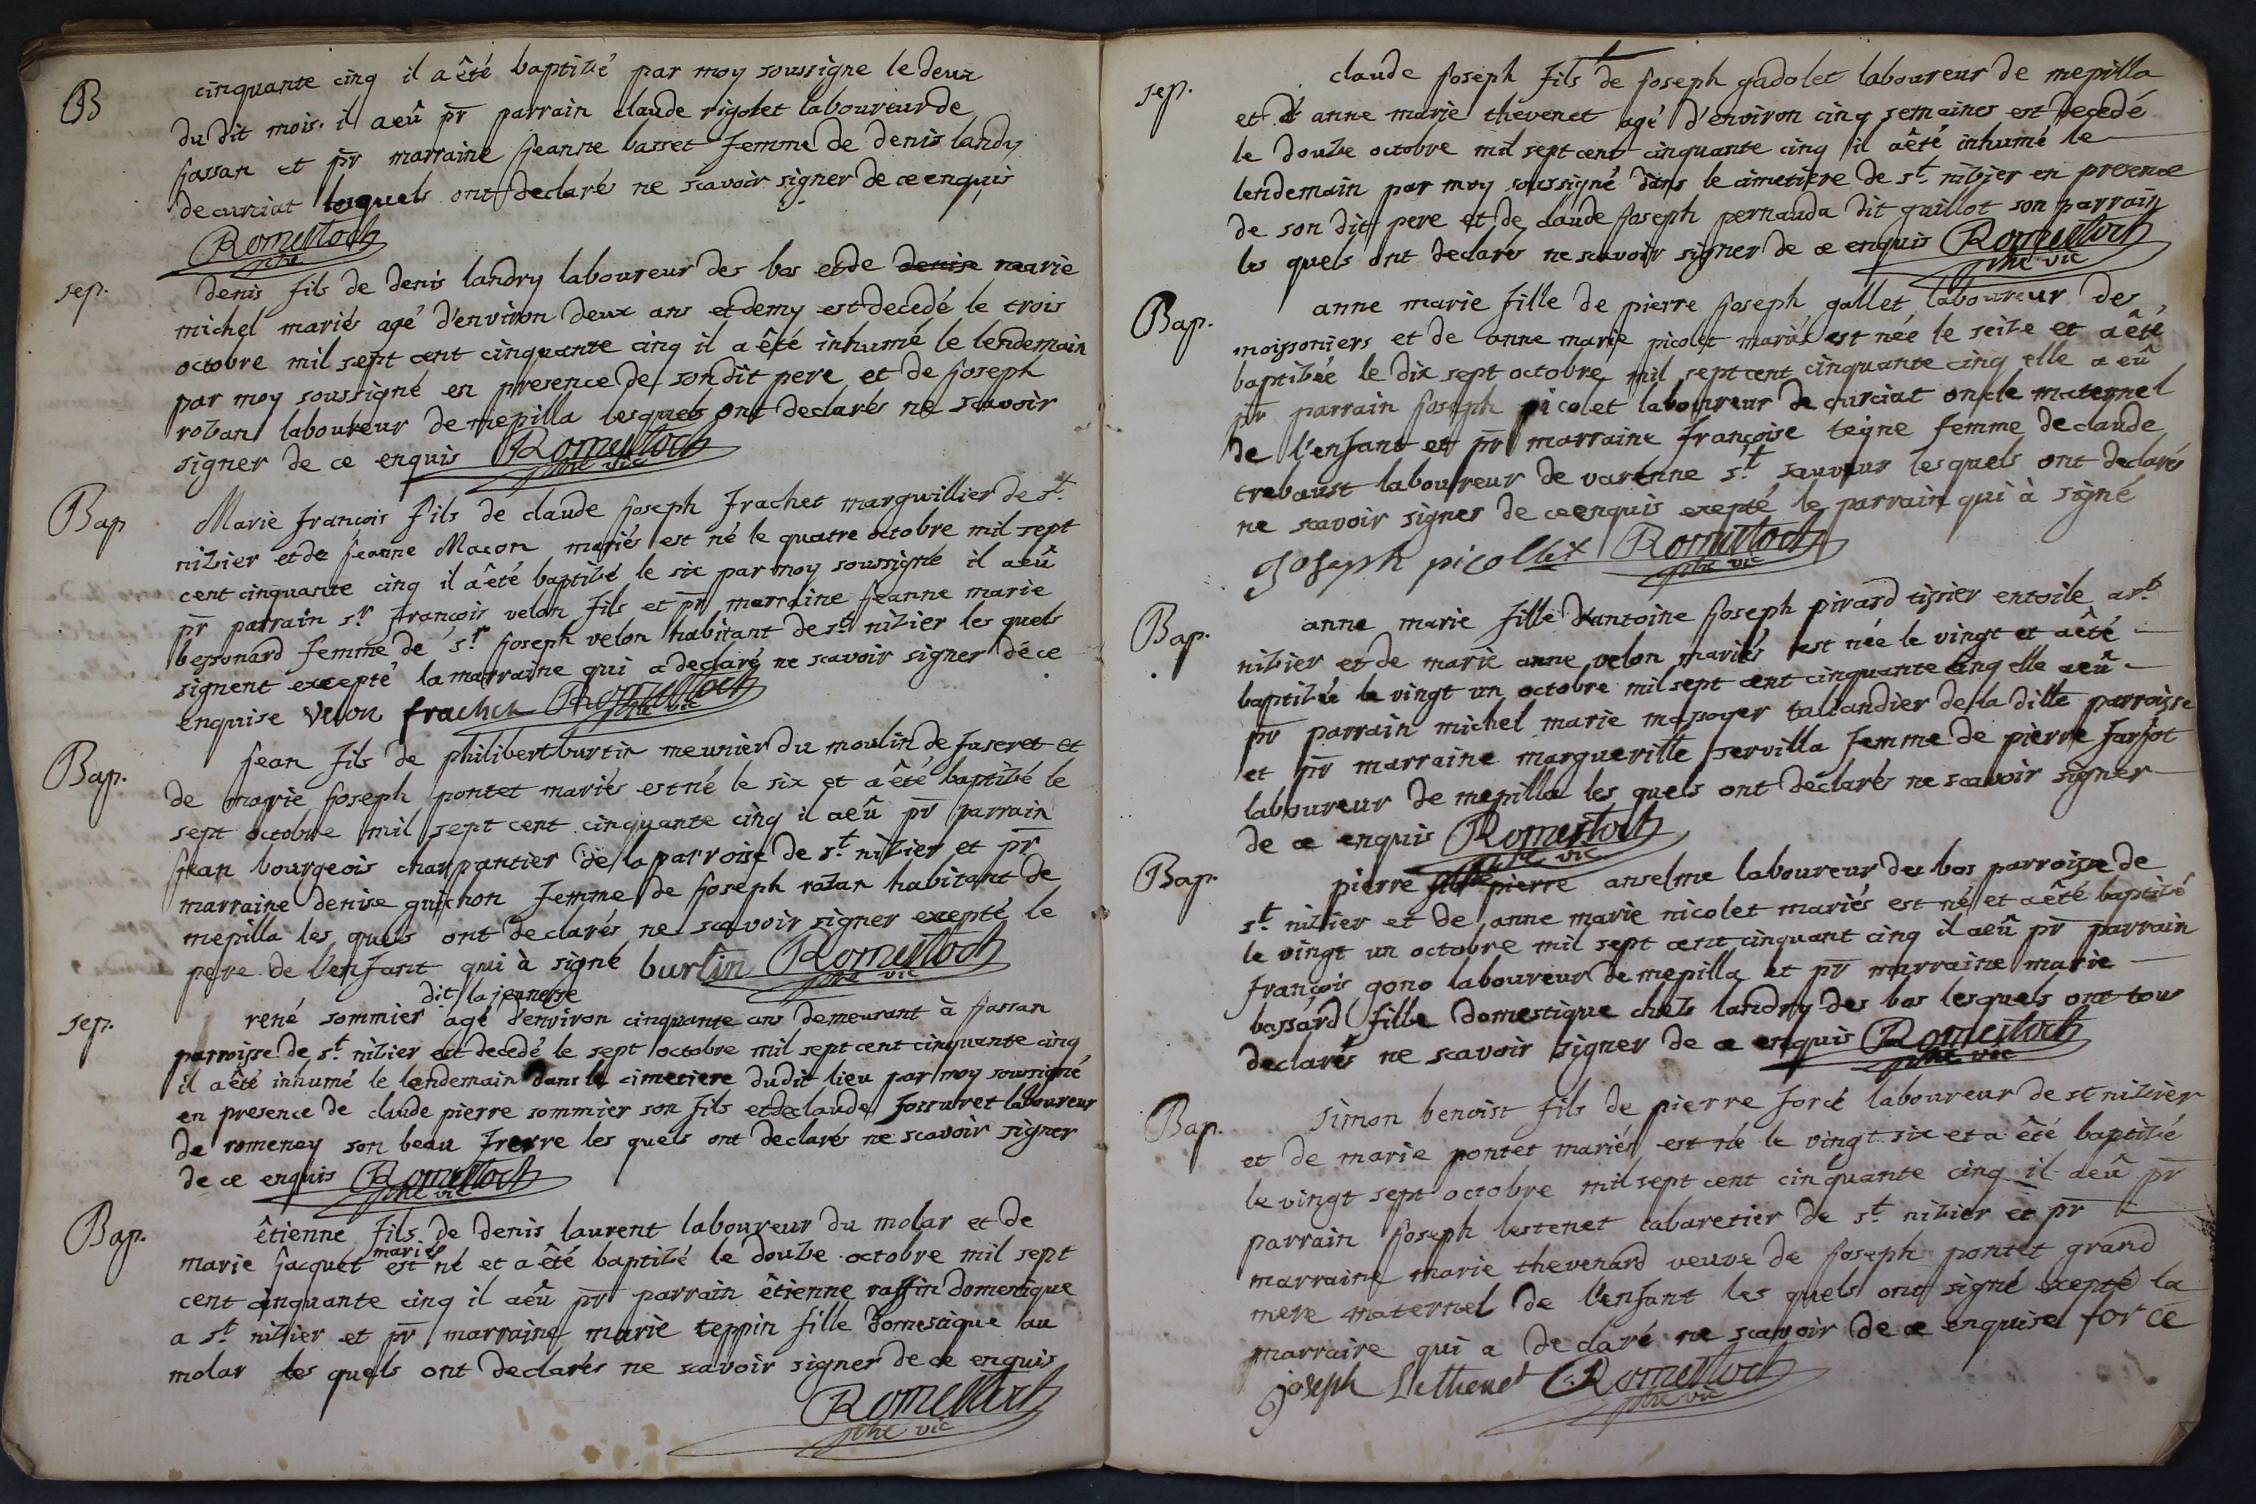 B
cinquante cinq il a êté baptizé par moy soussigne le deux
du dit mois. il aeû pr parrain claude rigolet laboureur de
jassan et pr marraine jeanne basset femme de denis landry
de curciat lesquels ont declarés ne scavoir signer de ce enquis
Romestoch
ptre
sep.
denis fils de denis landry laboureur des bas et de denise marie
michel mariés agé d'environ deux ans et demy est decedé le trois
octobre mil sept cent cinquante cinq il a êté inhumé le lendemain
par moy soussigné en presence de son dit pere et de joseph
roban laboureur de mepilla lesquels ont declarés ne scavoir
signer de ce enquis Romestoch
ptre vic
Bap
Marie françois fils de claude joseph frachet marguillier de st
nizier et de jeanne Macon mariés est né le quatre octobre mil sept
cent cinquante cinq il a êté baptizé le six par moy soussigné il aeû
pr parrain sr françois velon fils et pr marraine jeanne marie
bessonard femme de sr joseph velon habitant de st nizier les quels
signent excepté la marraine qui a declaré ne scavoir signer de ce
enquise Velon frachet Romestoch
ptre vic
Bap.
jean fils de philibert burtin meunier du moulin de fuseret et
de marie joseph pontet mariés est né le six et a êté baptizé le
sept octobre mil sept cent cinquante cinq il aeû pr parrain
jean bourgeois charpantier de la parroise de st nizier et pr
marraine denise guichon femme de joseph razan habitant de
mepilla les quels ont declarés ne scavoir signer excepté le
pere de l'enfant qui à signé burtin Romestoch
ptre vic
sep.
dit la jeunesse
rené sommier agé d'environ cinquante ans demeurant à jassan
parroisse de st nizier est decedé le sept octobre mil sept cent cinquante cinq
il a êté inhumé le lendemain dans le cimetiere du dit lieu par moy soussigné
en presence de claude pierre sommier son fils et de claude fossuret laboureur
de romenay son beau frerre les quels ont declarés ne scavoir signer
de ce enquis Romestoch
ptre vic
Bap.
êtienne fils de denis laurent laboureur du molar et de
mariés
marie jacquet est né et a êté baptizé le douze octobre mil sept
cent cinquante cinq il aeû pr parrain êtienne raffin domestique
a st nizier et pr marraine marie teppin fille domestique au
molar les quels ont declarés ne scavoir signer de ce enquis
Romestoch
ptre vic
sep.
claude joseph fils de joseph gadolet laboureur de mepilla
et d anne marie thevenet agé d'environ cinq semaines est decedé
le douze octobre mil sept cent cinquante cinq il a êté inhumé le
lendemain par moy soussigné dans le cimetiere de st nizier en presence
de son dit pere et de claude joseph pernauda dit guillot son parrain
les quels ont declarés ne scavoir signer de ce enquis Romestoch
ptre vic
Bap.
anne marie fille de pierre joseph gallet laboureur des
moissoniers et de anne marie picolet mariés est née le seize et a êté
baptizée le dix sept octobre mil sept cent cinquante cinq elle a eû
pr parrain joseph picolet laboureur de curciat oncle maternel
de l'enfant et pr marraine françoise teyne femme de claude
trebaust laboureur de varenne st sauveur lesquels ont declarés
ne scavoir signer de ce enquis exepté le parrain qui à signé
joseph picollet Romestoch
ptre vic
Bap.
anne marie fille d'antoine joseph pirard tissier en toile a st
nizier et de marie anne velon mariés est née le vingt et a êté
baptizée le vingt un octobre mil sept cent cinquante cinq elle aeû
pr parrain michel marie mapoyer tallandier de la ditte parroisse
et pr marraine margueritte servilla femme de pierre farjot
laboureur de mepilla les quels ont declarés ne scavoir signer
de ce enquis Romestoch
ptre vic
Bap.
pierre fils pierre anselme laboureur des bas parroisse de
st nizier et de anne marie nicolet mariés est né et a êté baptizé
le vingt un octobre mil sept cent cinquant cinq il aeû pr parrain
françois gono laboureur de mepilla et pr marraine marie
bassard fille domestique chez landry des bas lesquels ont tous
declarés ne scavoir signer de ce enquis Romestoch
ptre vic
Bap.
simon benoist fils de pierre forcé laboureur de st nizier
et de marie pontet mariés est né le vingt six et a êté baptizé
le vingt sept octobre mil sept cent cinquante cinq il aeû pr
parrain joseph lestenet cabaretier de st nizier et pr
marraine marie thevenard veuve de joseph pontet grand
mere maternel de l'enfant les quels ont signé excepté la
marraine qui a declaré ne scavoir de ce enquise forcé
joseph Lethenet Romestoch
ptre vic